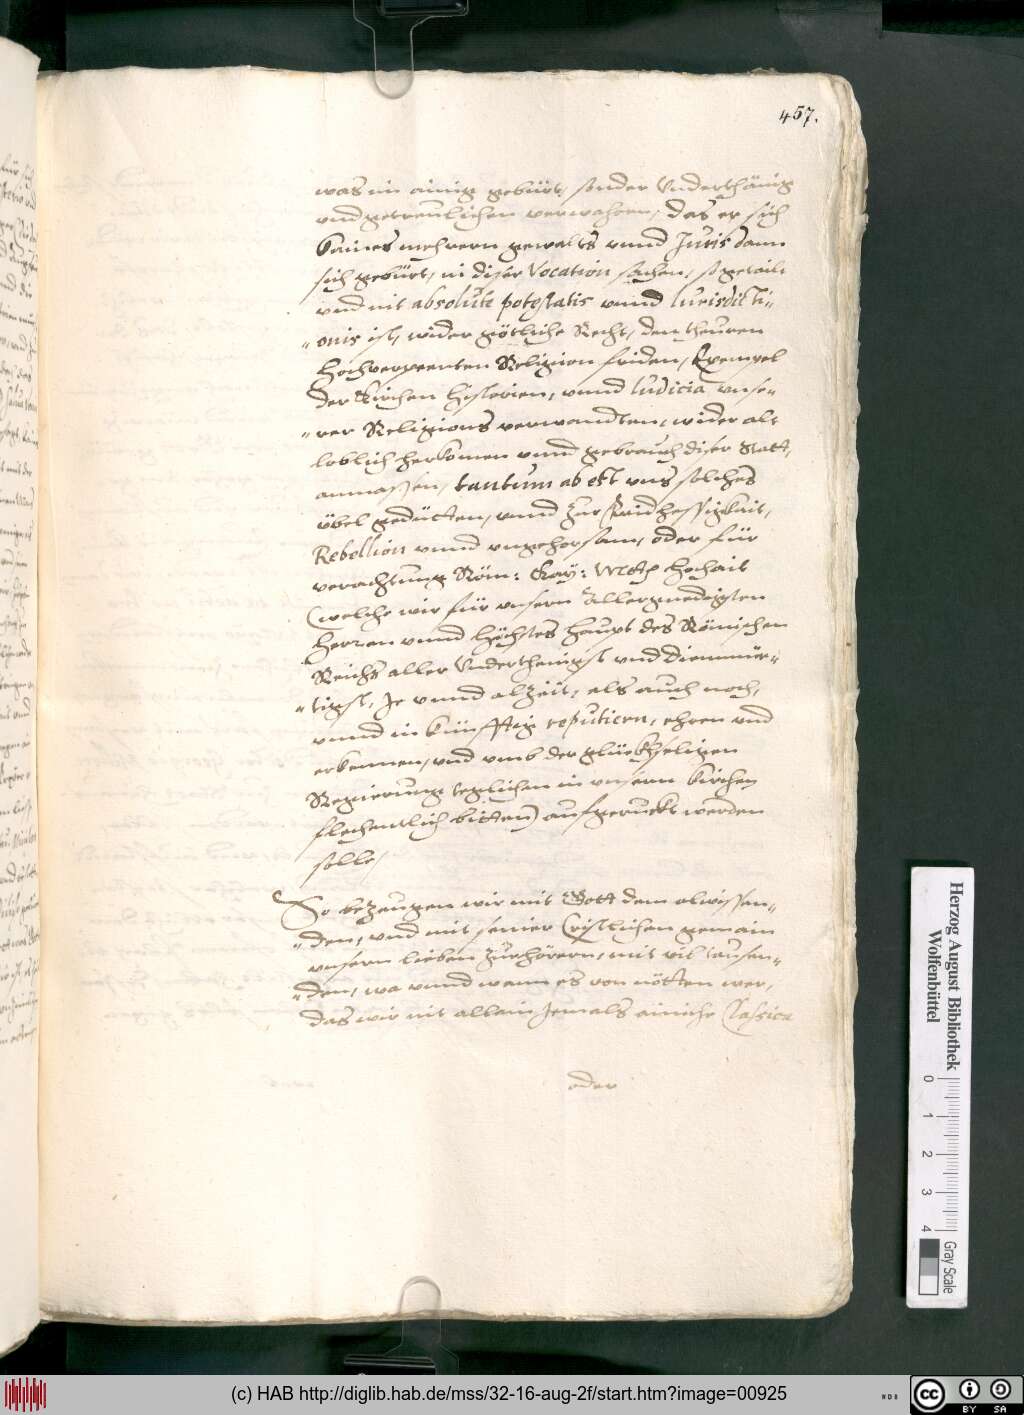 457.
was im ainig gebürt, sonder Vnderthänig
vnd getreulichen verwahren, das er sich
kaines mehrern gewalts vnnd Juris dann
sich gebürt, in diser Vocation sachen, so getailt
vnd nit absolutæ potestatis vnnd Iurisdicti„
„onis ist, wider götliche Recht, den theuren
hochverpeenten Religion friden, Exempel
der Kirchen Historien, vnnd Iudicia vnse„
„rer Religions verwandten, wider alt
loblich herkomen vnnd gebrauch diser Statt,
anmassen, tantum abest vns solches
übel gedütten, vnnd zur
Rebellion vnnd vngehorsam, oder für
verachtung Röm: Kay: Mtt hochait
(welche wir für vnsern Allergnedigsten
Herren vnnd höchstes haupt des Römischen
Reichs aller Vnderthenigst vnd Diemüt„
„tigst, Je vnnd alzeit, als auch noch,
vnnd in künfftig reputiern, ehren vnd
erkennen, vnd vmb der glückhseligen
Regierung teglichen in vnsern Kirchen
flechentlich bitten) aufgeruckt werden
solle,
So bezeugen wir mit Gott dem alwissen„
„den, vnd mit seiner Cristlichen gemain
vnsern lieben Zuhörern, mit vil tausen„
„den, wa vnnd wann es von nötten wer,
das wir nit allain Jemals ainiche Classica
oder
Herzog August Bibliothek
Wolfenbüttel
0 1 2 3 4
Gray Scale
(c) HAB http://diglib.hab.de/mss/32-16-aug-2f/start.htm?image=00925
WDB
cc BY SA